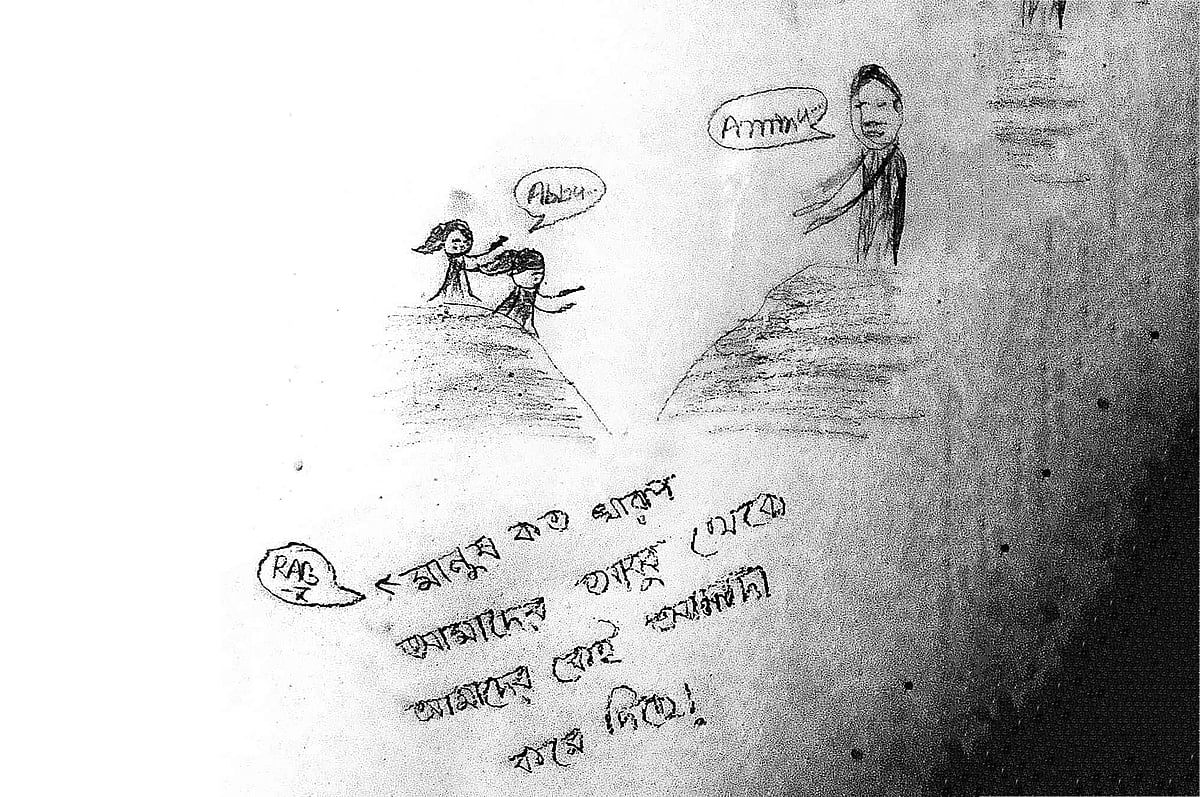 Ammu...
Abbu...
RAB
মানুষ কত খারপ
আমাদের আব্বু থেকে
আমাদের কেই আলাদা
করে দিছে!